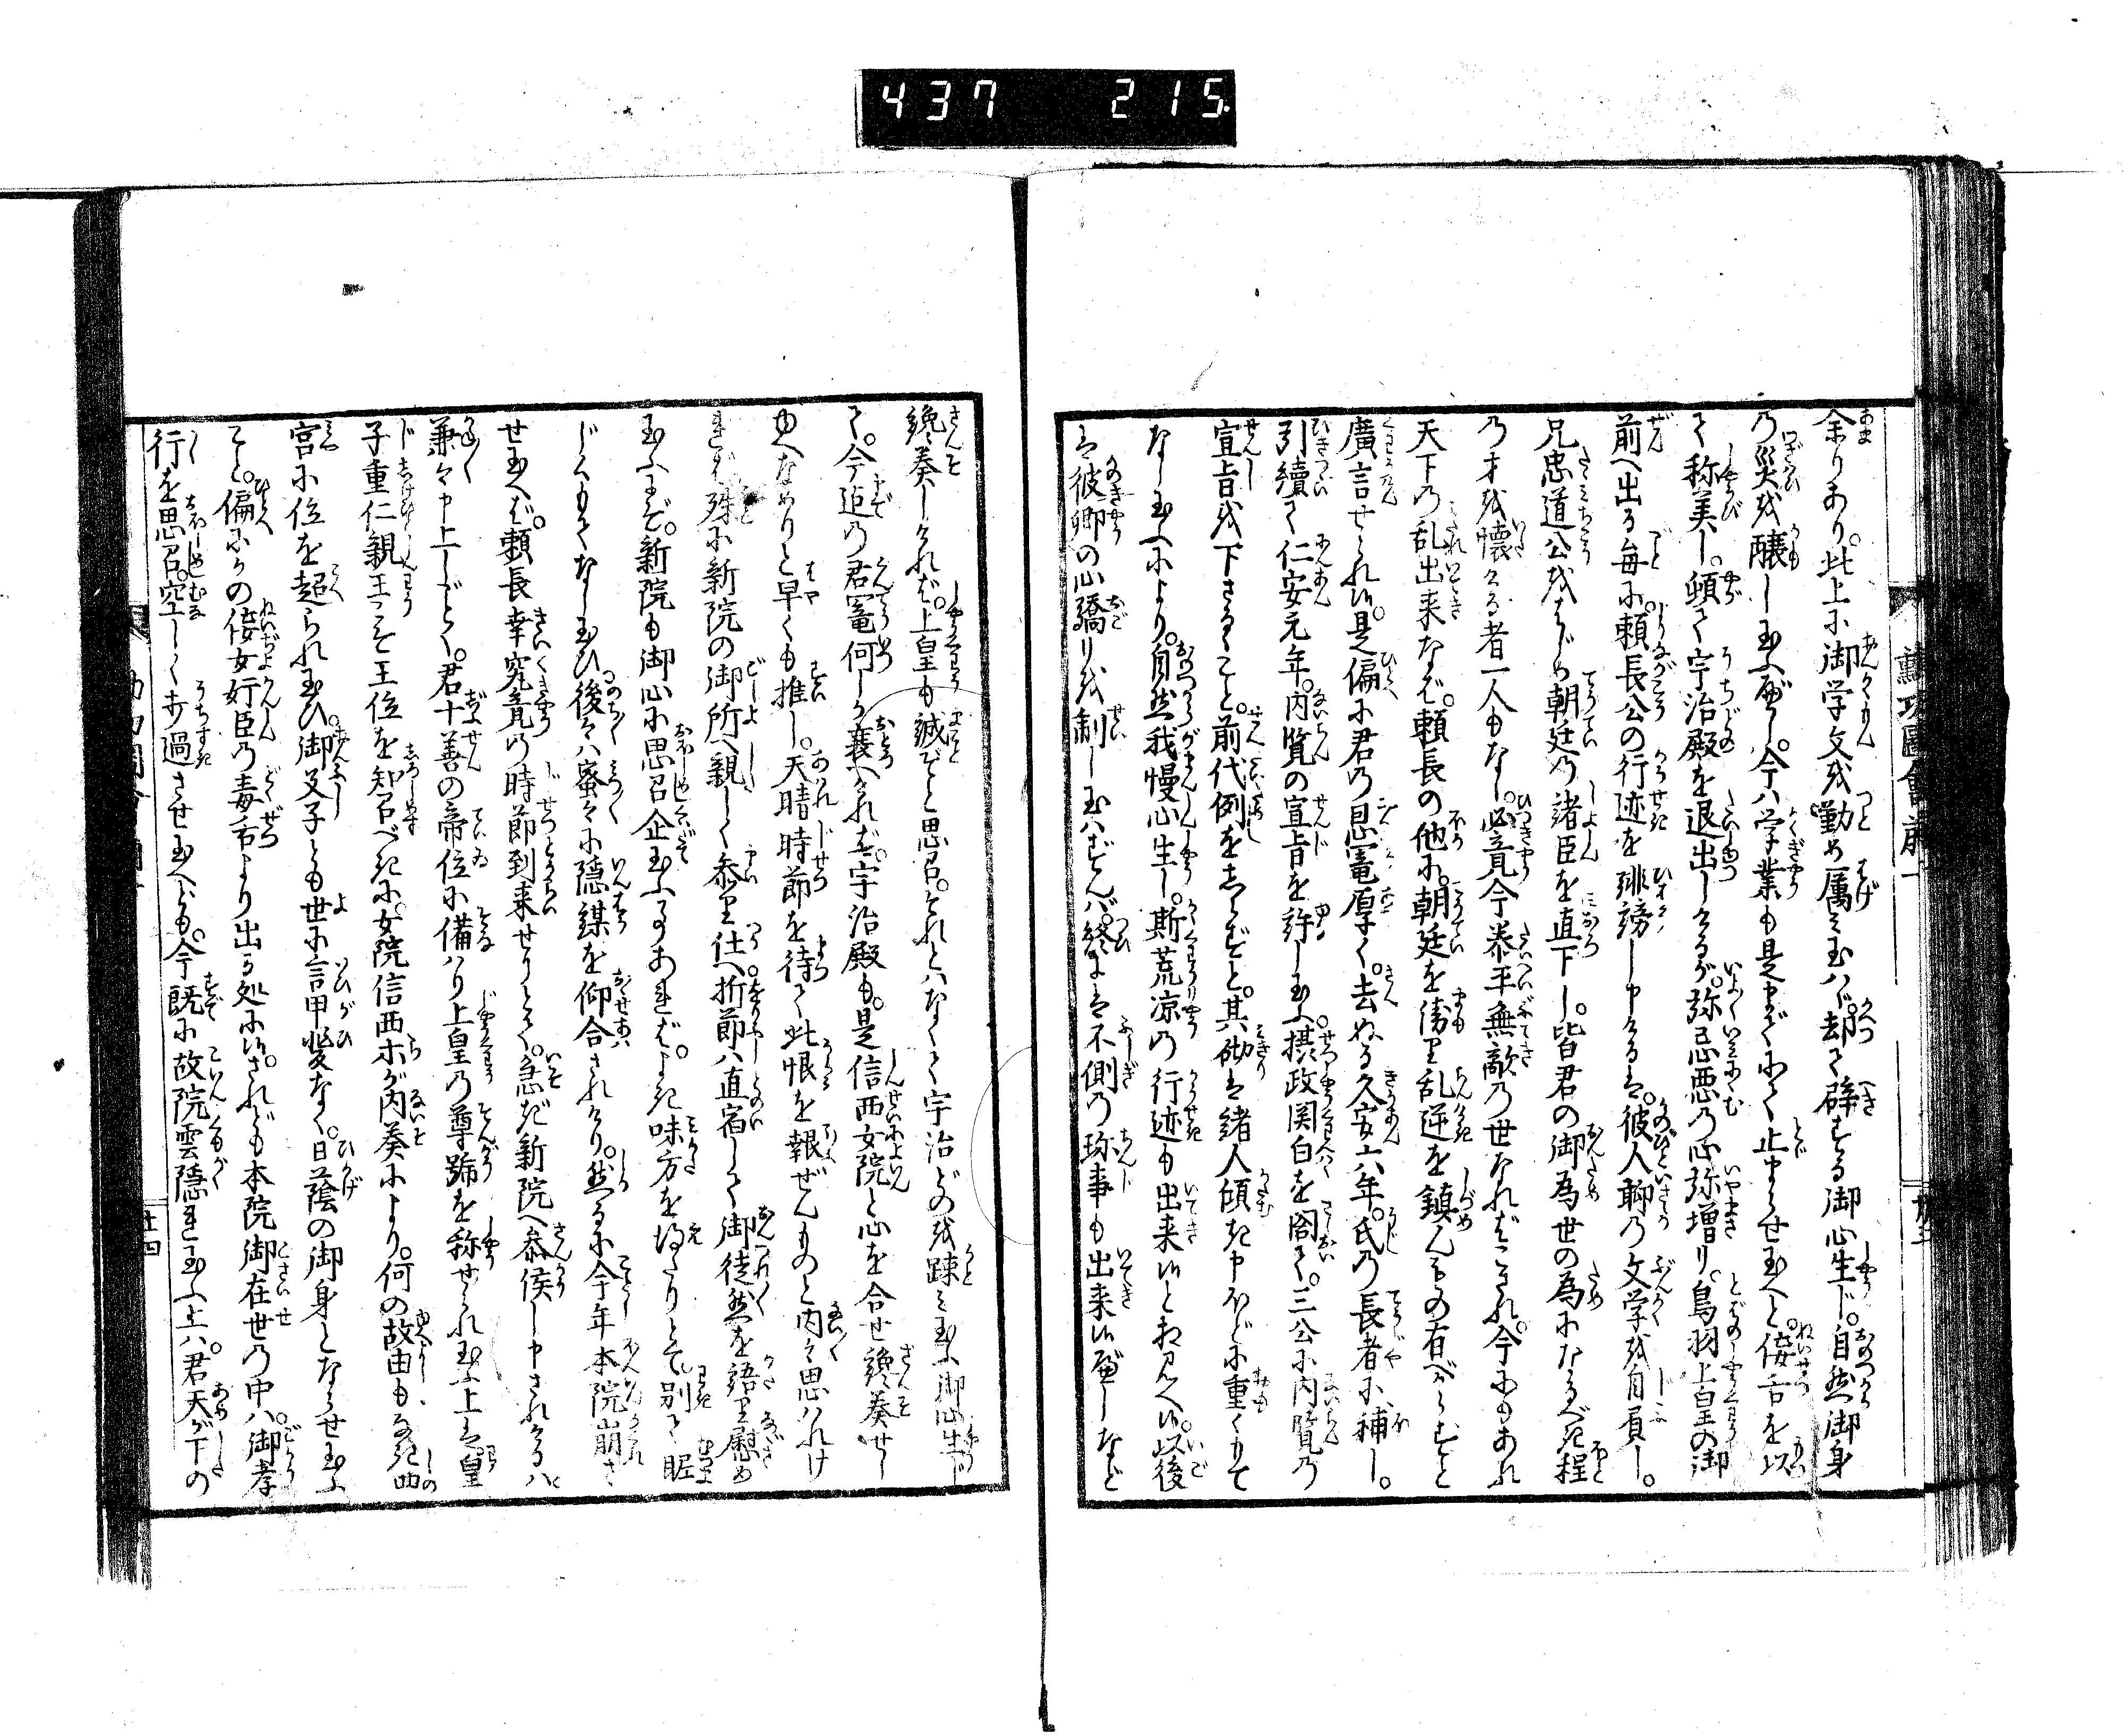 437 215
余りあり。此上に御学文を勤め属み玉はゞ。却て癖する御心生じ。自然御身
の災を醸し玉ふべし。今は学業も是までにて止まらせ玉へと。佞舌を以
て称美し。頓て宇治殿を退出しけるが。弥忌悪の心弥増り。鳥羽上皇の御
前へ出る毎に。頼長公の行迹を誹謗し申けるは。彼人聊の文学を自負し。
兄忠道公をはじめ朝廷の諸臣を直下し。皆君の御為世の為になるべき程
の才を懐ける者一人もなし。必竟今泰平無敵の世なればこされ。今にもあれ
天下の乱出来なば。頼長の他に。朝廷を衛り乱逆を鎮んもの有べからずと
廣言せられ候。是偏に君の恩寵厚く。去ぬる久安六年。氏の長者に補し。
引續て仁安元年。内覧の宣旨を許し玉ふ。摂政関白を閣て。三公に内覧の
宣旨を下さるゝこと。前代例をしらずと。其砌は緒人傾き申ほどに重くもて
なし玉ふにより。自然我慢心生し。斯荒凉の行迹も出来候と相見へ候。以後
は彼卿の心驕りを制し玉はずんば。終には不側の珎事も出来候べしなど
讒奏しければ。上皇も誠ぞと思召。それとはなくて宇治どのを踈み玉ふ御心生じ
て。今迠の君寵何しか襄へければ。宇治殿も。是信西女院と心を合せ讒奏せし
ゆへなめりと早くも推し。天晴時節を待て此恨を報ぜんものと内々思はれけ
れば。殊に新院の御所へ親しく参り仕へ折節は直宿して御徒然を語り慰め
玉ふまで。新院も御心に思召企玉ふ事あれば。よき味方を得たりとて別て眤
じくもてなし玉ひ後々は蜜々に隠謀を仰合されけり。然るに今年本院崩さ
せ玉へば。頼長幸究竟の時節到来せりとて。急ぎ新院へ参候し申されけるは
兼々申上しごとく。君十善の帝位に備はり上皇の尊号を称せられ玉ふ上は皇
子重仁親王こそ王位を知召べきに。女院信西ホが内奏により。何の故由もなき四
宮に位を超られ玉ひ。御父子とも世に言甲斐なく。日蔭の御身とならせ玉ふ
こと。偏にかの佞女奸臣の毒舌より出る処に候。されども本院御在世の中は。御孝
行を思召。空しく打過させ玉へども。今既に故院雲隠れ玉ふ上は。君天が下の
廿四